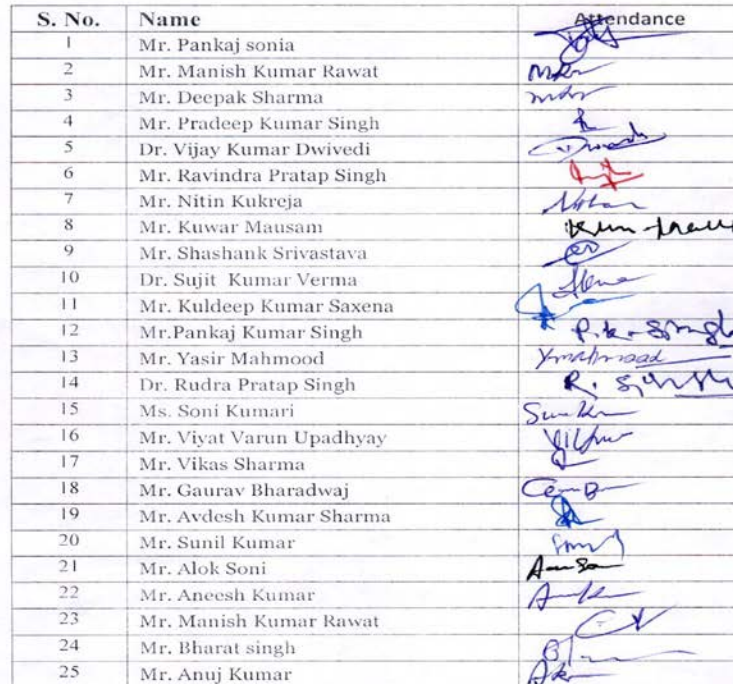 S. No. Name Attendance
1 Mr. Pankaj sonia
2 Mr. Manish Kumar Rawat
3 Mr. Deepak Sharma
4 Mr. Pradeep Kumar Singh
5 Dr. Vijay Kumar Dwivedi
6 Mr. Ravindra Pratap Singh
7 Mr. Nitin Kukreja
8 Mr. Kuwar Mausam
9 Mr. Shashank Srivastava
10 Dr. Sujit Kumar Verma
11 Mr. Kuldeep Kumar Saxena
12 Mr.Pankaj Kumar Singh P.k. Singh
13 Mr. Yasir Mahmood Ymahmood
14 Dr. Rudra Pratap Singh R. Singh
15 Ms. Soni Kumari
16 Mr. Viyat Varun Upadhyay
17 Mr. Vikas Sharma
18 Mr. Gaurav Bharadwaj
19 Mr. Avdesh Kumar Sharma
20 Mr. Sunil Kumar
21 Mr. Alok Soni
22 Mr. Aneesh Kumar
23 Mr. Manish Kumar Rawat
24 Mr. Bharat singh
25 Mr. Anuj Kumar